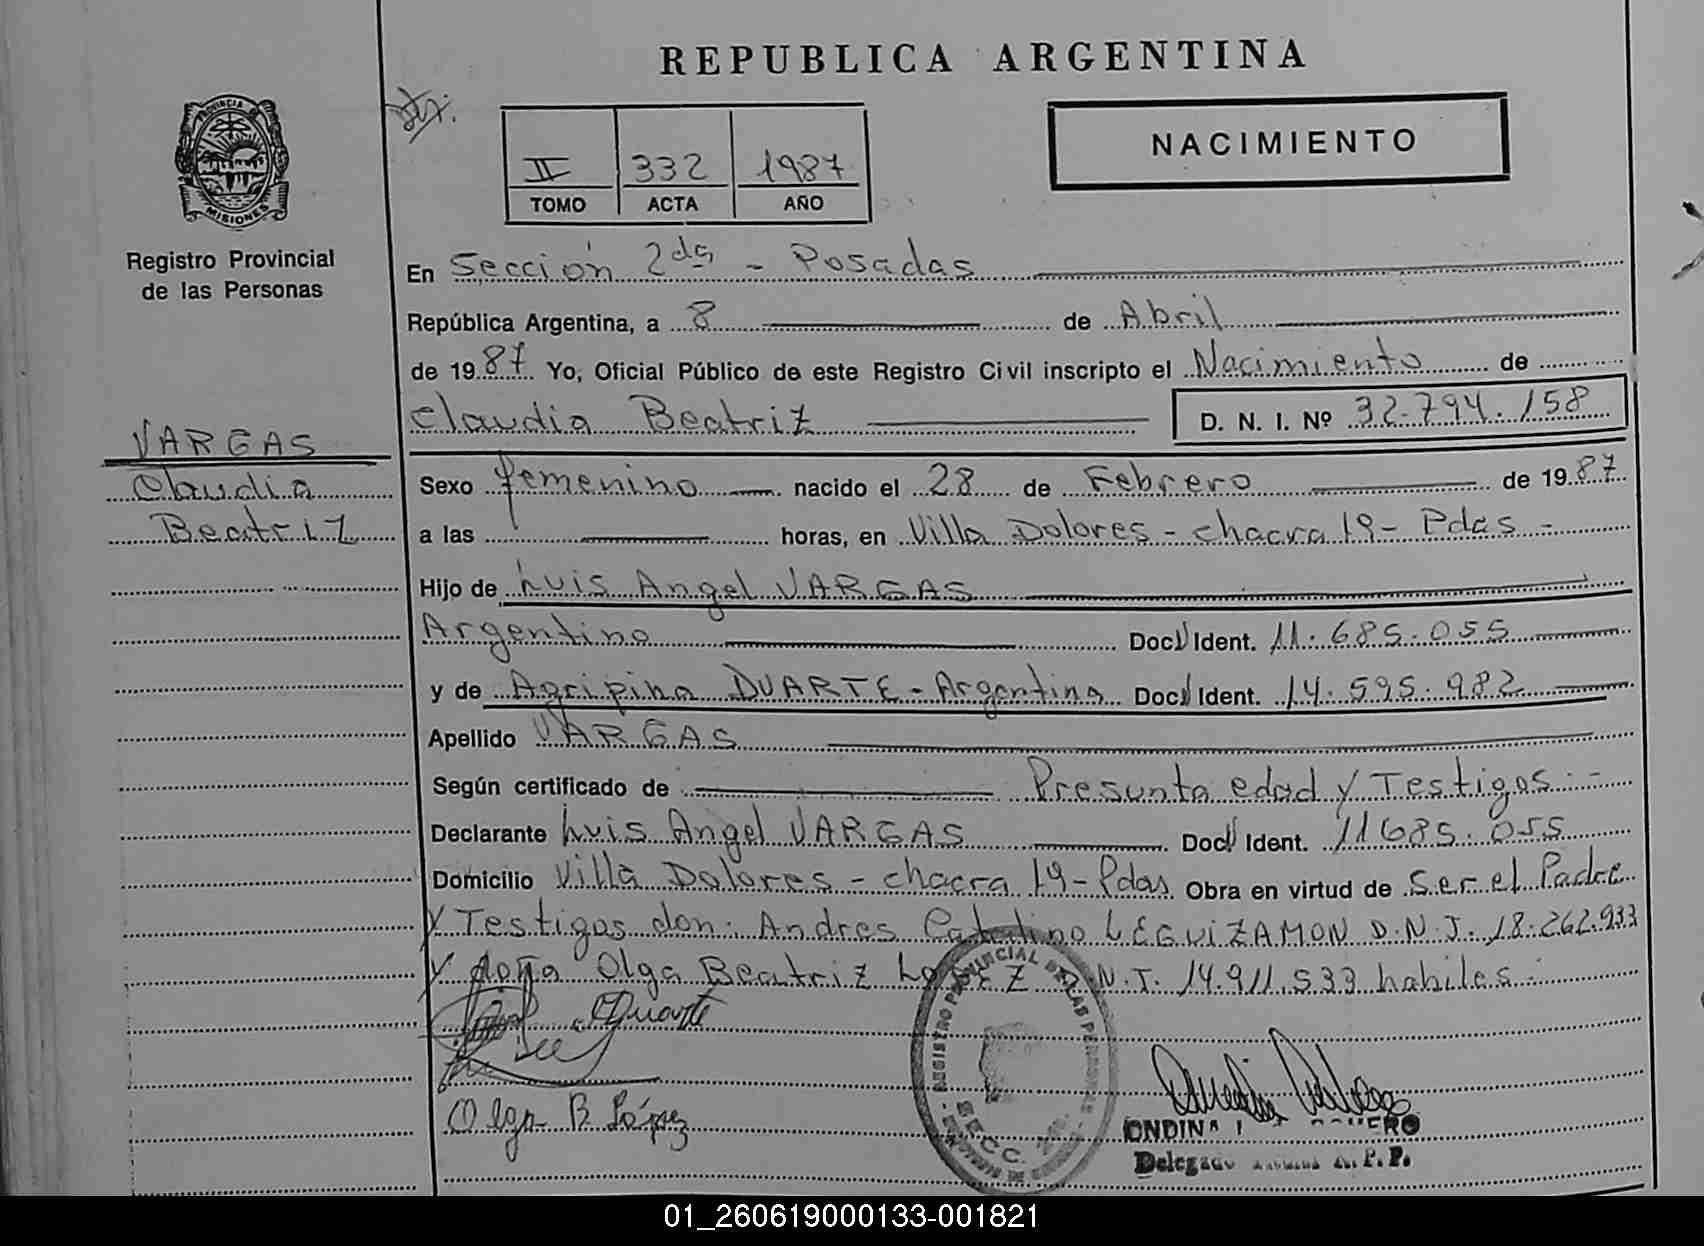 REPUBLICA ARGENTINA
PROVINCIA DE
MISIONES
Registro Provincial
de las Personas
II 332 1987
TOMO ACTA AÑO
NACIMIENTO
En Sección 2da - Posadas
República Argentina, a 8 de Abril
de 1987 Yo, Oficial Público de este Registro Civil inscripto el Nacimiento de
Claudia Beatriz D. N. I. Nº 32.794.158
VARGAS
Claudia
Beatriz
Sexo femenino nacido el 28 de Febrero de 1987
a las horas, en Villa Dolores - chacra 19 - Pdas -
Hijo de Luis Angel VARGAS
Argentino Doc. Ident. 11.685.055
y de Agripina DUARTE - Argentina Doc. Ident. 14.595.982
Apellido VARGAS
Según certificado de Presunta edad y Testigos.-
Declarante Luis Angel VARGAS Doc. Ident. 11685.055
Domicilio Villa Dolores - chacra 19 - Pdas Obra en virtud de Ser el Padre
y Testigos don: Andres Catalino LEGUIZAMON D.N.I. 18.262.933
y doña Olga Beatriz LOPEZ D.N.I. 14.911.533 habiles.-
ADuarte
Olga B. López
REGISTRO PROVINCIAL DE LAS PERSONAS
SECC.
Delegado A.P.P.
01_260619000133-001821